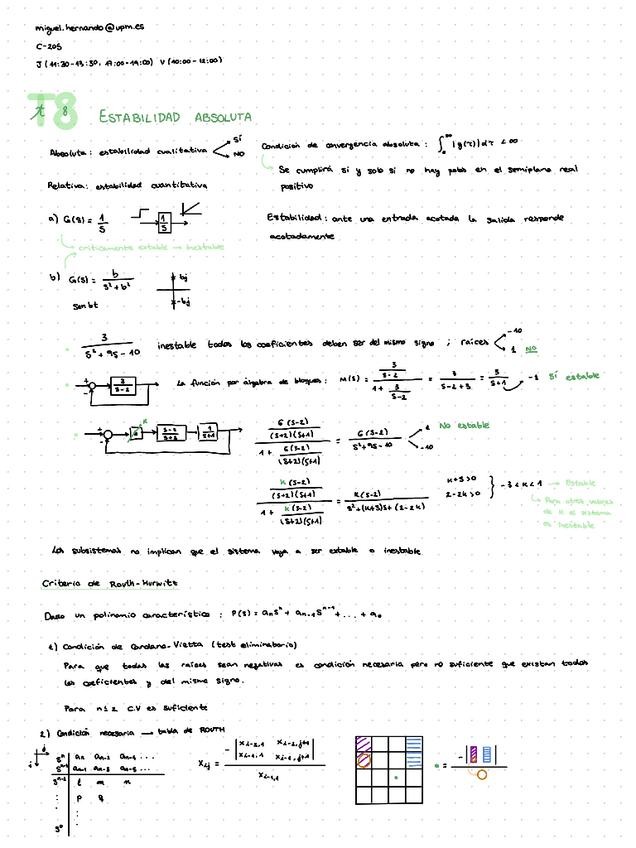 miguel.hernando@upm.es
C-205
J (11:30-13:30, 17:00-19:00) V (10:00-12:00)
T8
ESTABILIDAD ABSOLUTA
Absoluta: estabilidad cualitativa
SÍ
NO
Condición de convergencia absoluta: ∫₀^∞ |y(τ)|dτ < ∞
Se cumplirá si y solo si no hay polos en el semiplano real
positivo
Relativa: estabilidad cuantitativa
a) G(s) = 1/s
1/s
Estabilidad: ante una entrada acotada la salida responde
acotadamente
críticamente estable → inestable
b) G(s) = b/(s²+b²)
bj
-bj
Sen bt
3/(s²+9s-10) inestable todos los coeficientes deben ser del mismo signo ; raíces
-10
1 NO
+
-
3/(s-2)
La función por álgebra de bloques: M(s) = (3/(s-2))/(1 + 3/(s-2)) = 3/(s-2+3) = 3/(s+1)
-1 Sí estable
+
-
6
K
(s-2)/(s+2)
1/(s+1)
(6(s-2)/((s+2)(s+1)))/(1 + 6(s-2)/((s+2)(s+1))) = 6(s-2)/(s²+9s-10)
1
-10
No estable
(K(s-2)/((s+2)(s+1)))/(1 + K(s-2)/((s+2)(s+1))) = K(s-2)/(s²+(K+3)s+(2-2K))
K+3>0
2-2K>0
-3<K<1 → Estable
Para otros valores
de K el sistema
es inestable
Los subsistemas no implican que el sistema vaya a ser estable o inestable
Criterio de Routh-Hurwitz
Dado un polinomio característico : P(s) = aₙsⁿ + aₙ₋₁sⁿ⁻¹ + ... + a₀
1) Condición de Cardano-Vietta (test eliminatorio)
Para que todas las raíces sean negativas es condición necesaria pero no suficiente que existan todos
los coeficientes y del mismo signo.
Para n≤2 C.V es suficiente
2) Condición necesaria → tabla de ROUTH
j
i
sⁿ aₙ aₙ₋₂ aₙ₋₄ ...
sⁿ⁻¹ aₙ₋₁ aₙ₋₃ aₙ₋₅ ...
sⁿ⁻² l m n
p q
s⁰
xᵢⱼ = -|xᵢ₋₂,₁ xᵢ₋₂,ⱼ₊₁ xᵢ₋₁,₁ xᵢ₋₁,ⱼ₊₁| / xᵢ₋₁,₁